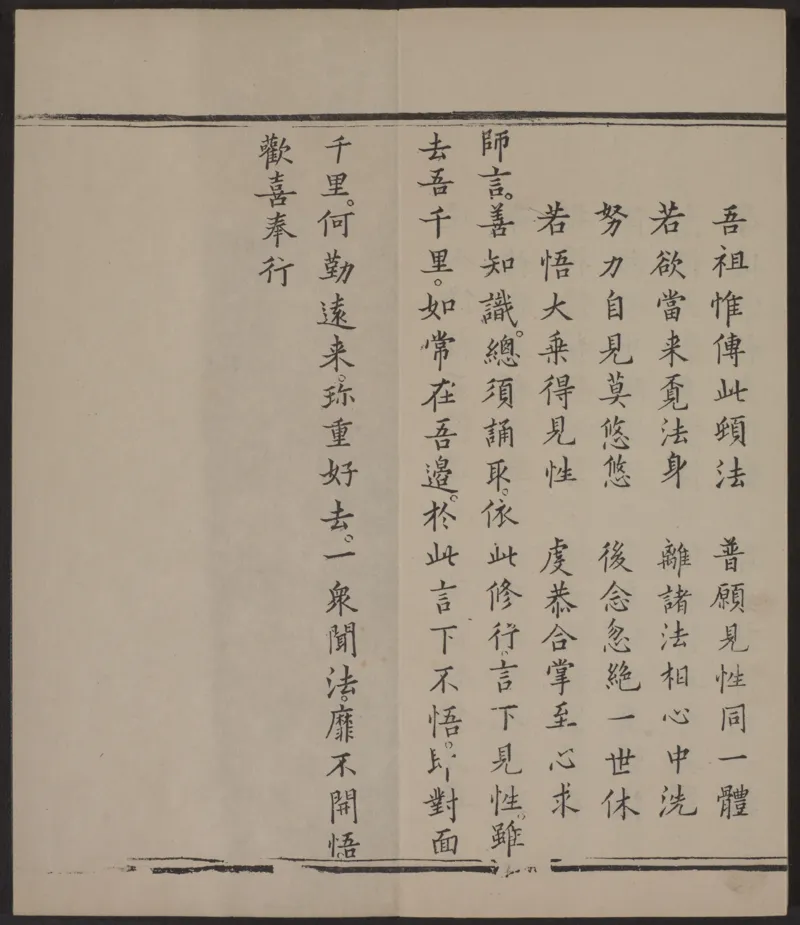 吾祖惟傳此頓法　普願見性同一體
若欲當来覔法身　離諸法相心中洗
努力自見莫悠悠　後念忽絶一世休
若悟大乗得見性　虔恭合掌至心求
師言。善知識。總須誦取。依此修行。言下見性。雖
去吾千里。如常在吾邉。於此言下不悟。即對面
千里。何勤遠来。珎重好去。一衆聞法。靡不開悟。
歡喜奉行